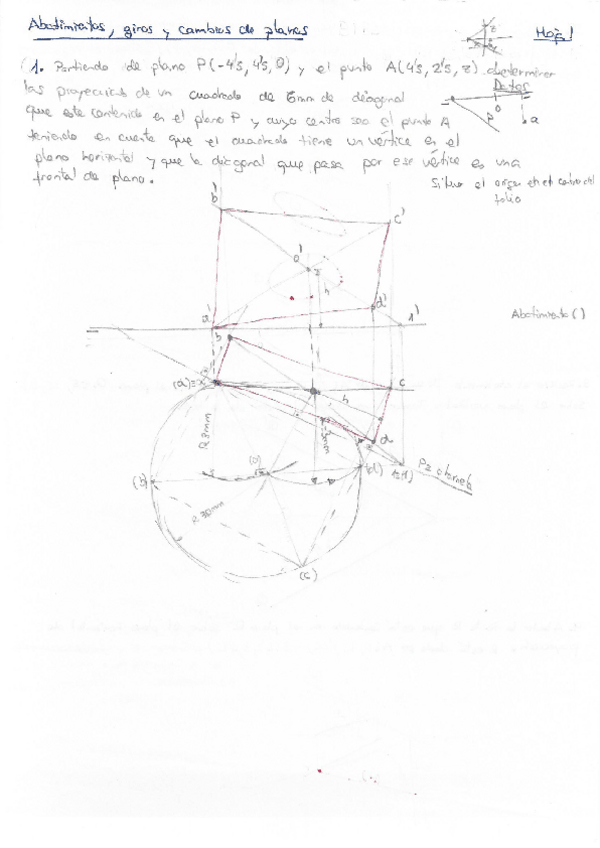 Abatimientos, giros y cambios de planos
Hoja 1
1. Partiendo de plano P(-4's, 4's, 0) y el punto A(4's, 2's, z) determinar
las proyecciones de un cuadrado de 6mm de diagonal
Datos
que este contenido en el plano P y cuyo centro sea el punto A
teniendo en cuenta que el cuadrado tiene un vértice en el
plano horizontal y que la diagonal que pasa por ese vértice es una
frontal de plano.
P
O
a
Situar el origen en el centro del
folio
b'
c'
o'
h
d'
a'
1'
Abatimiento ( )
b
c
h
d
R 3mm
(o)
(d)
(b)
R 30mm
(c)